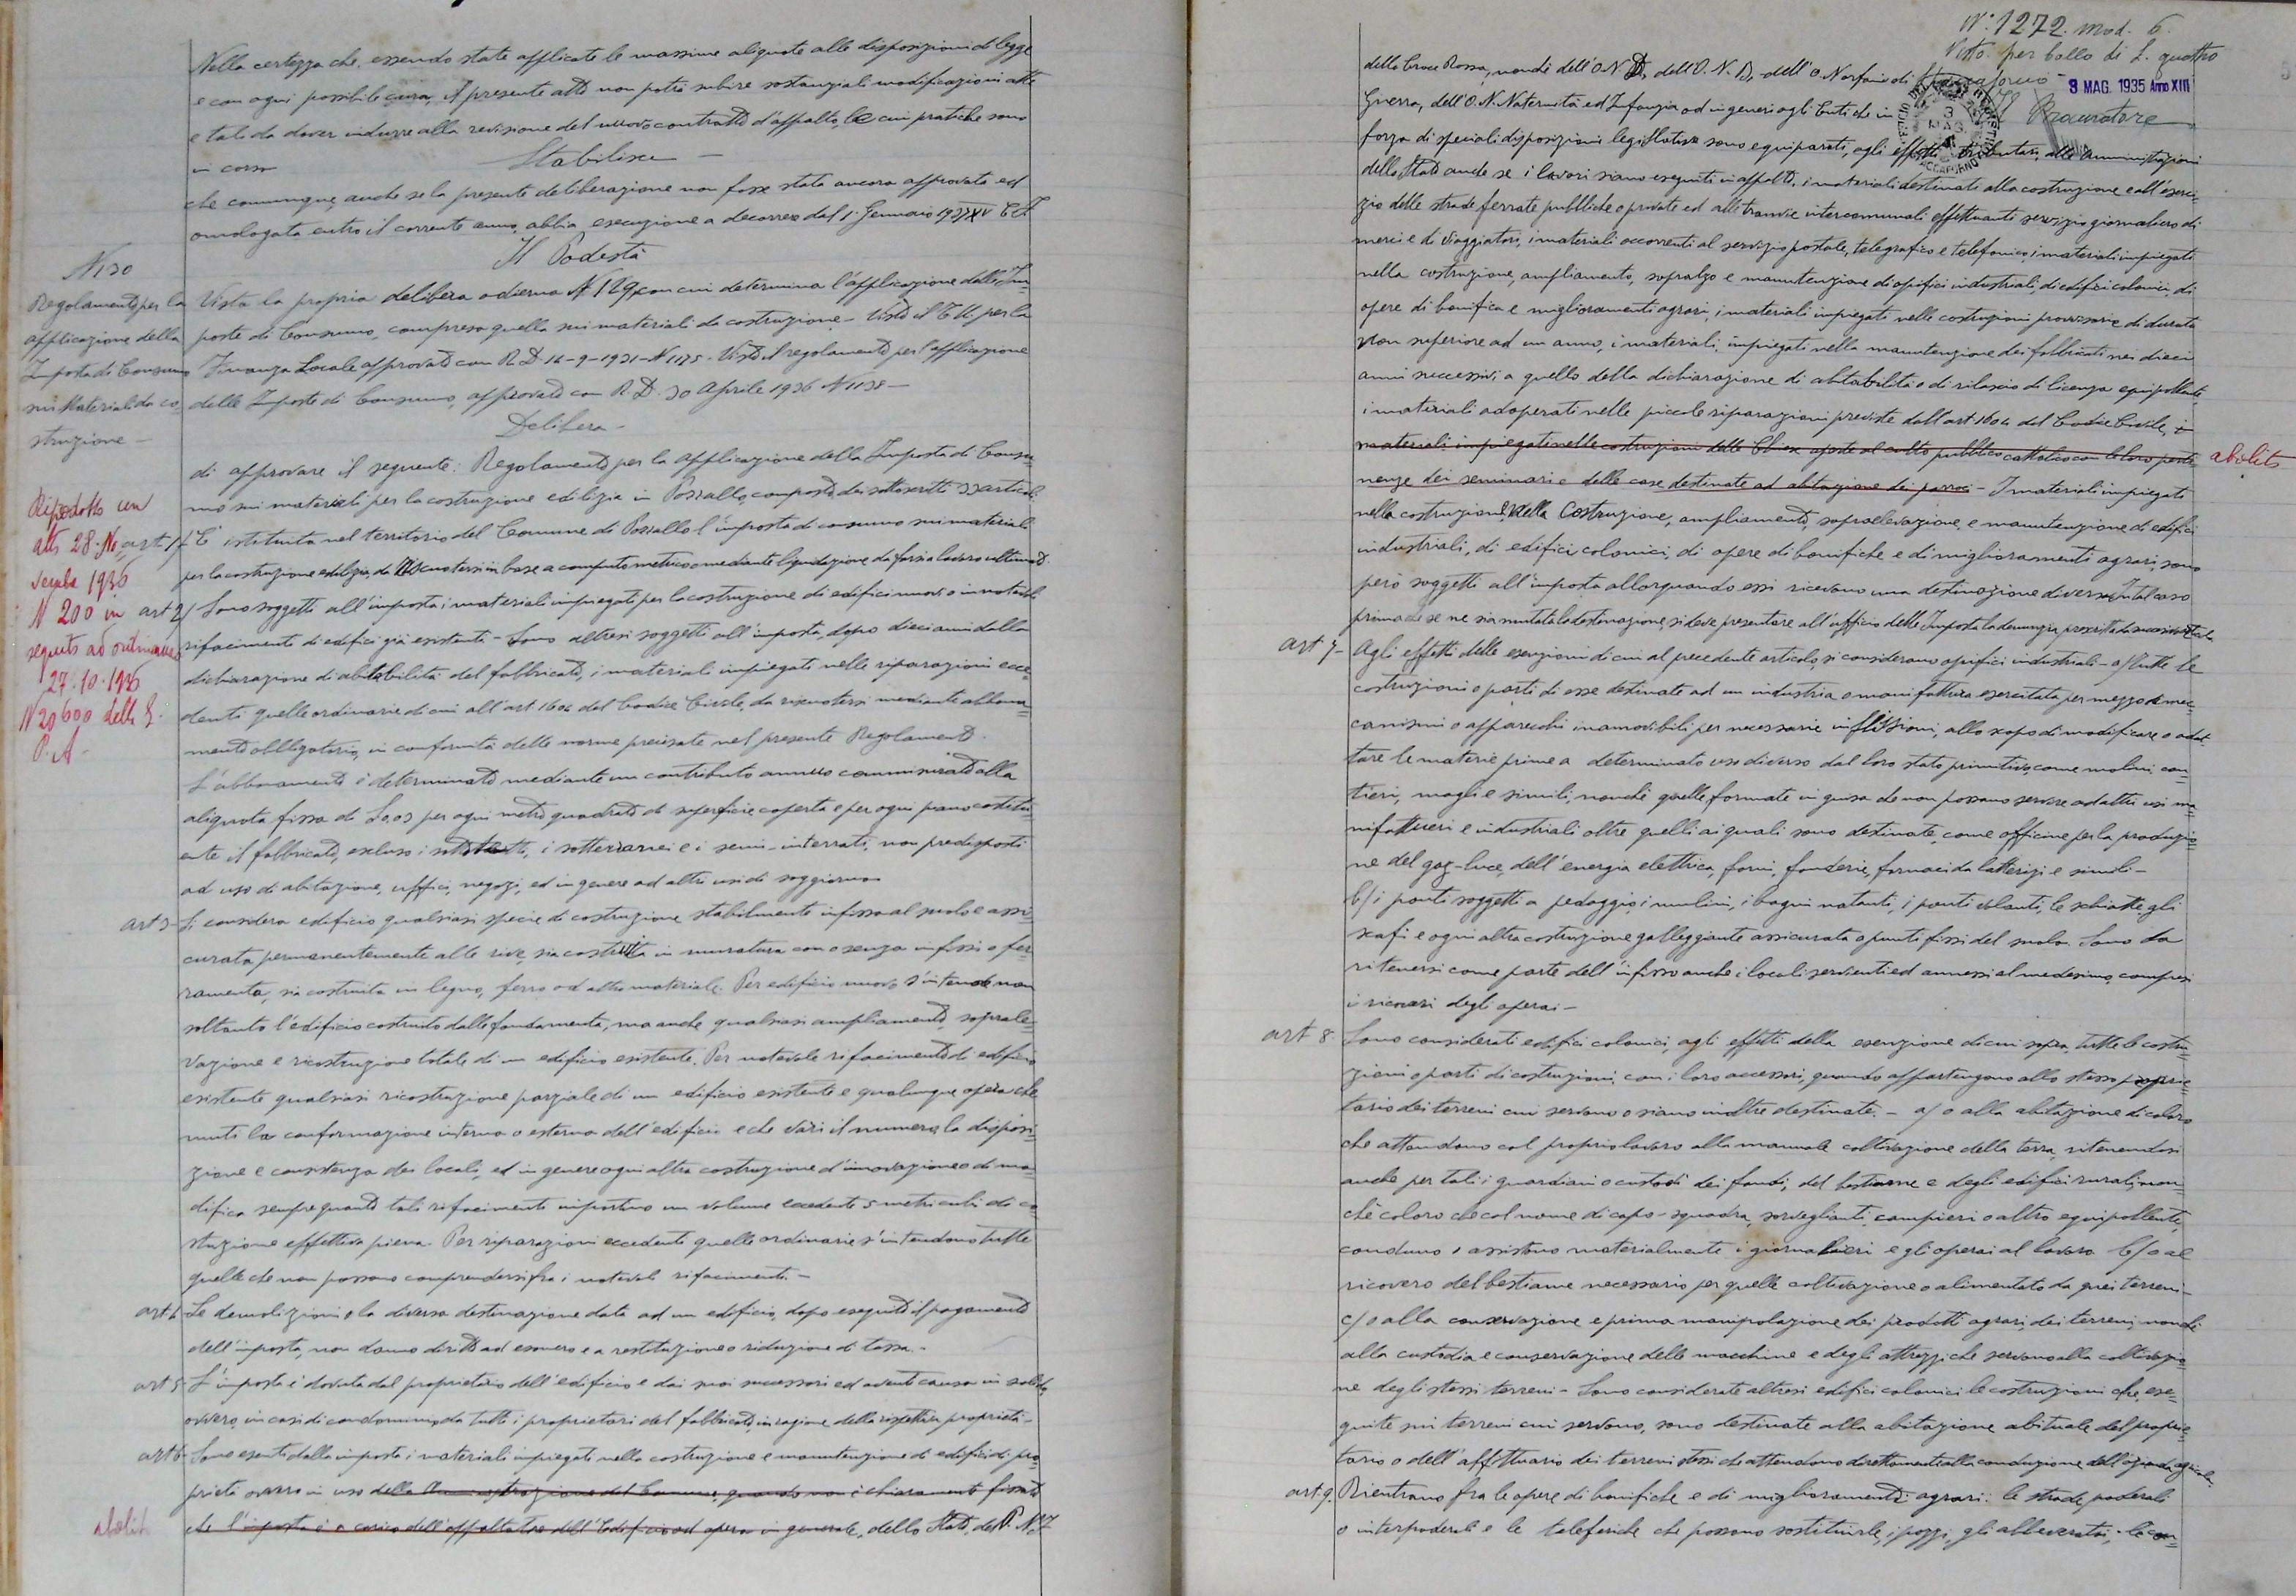 Nella certezza che essendo state applicate le massime aliquote alle disposizioni di legge
e con ogni possibile cura, il presente atto non potrà subire sostanziali modificazioni atte
e tali da dover indurre alla revisione del nuovo contratto d'appalto, le cui pratiche sono
in corso
Stabilisce —
che comunque, anche se la presente deliberazione non fosse stata ancora approvata ed
omologata entro il corrente anno, abbia esecuzione a decorrere dal 1° Gennaio 1937 XV E F
Il Podestà
N 130
Regolamento per la
applicazione della
Imposta di Consumo
sui Materiali da co-
struzione —
Vista la propria delibera odierna N 129, con cui determina l'applicazione delle Im-
poste di Consumo, compresa quella sui materiali da costruzione - Visto il T U per la
Finanza Locale approvato con R D 14-9-1931 - N 1175 - Visto il regolamento per l'applicazione
delle Imposte di Consumo, approvato con R. D. 30 Aprile 1936 N 1138 —
Delibera -
di approvare il seguente: Regolamento per la applicazione della Imposta di Consu-
mo sui materiali per la costruzione edilizia in Pozzallo, composto dei sottoscritti 33 articoli
Riprodotto con
atto 28 - No
vembre 1936
N 200 in
seguito ad ordinanza
27.10.1936
N 20600 della G.
P. A -
art 1/ E' istituita nel territorio del Comune di Pozzallo l'imposta di consumo sui materiali
per la costruzione edilizia, da riscuotersi in base a computo metrico o mediante liquidazione da farsi a lavoro ultimato
art 2/ Sono soggetti all'imposta i materiali impiegati per la costruzione di edifici nuovi o in notevole
rifacimento di edifici già esistenti - Sono altresì soggetti all'imposta, dopo dieci anni dalla
dichiarazione di abitabilità del fabbricato, i materiali impiegati nelle riparazioni ecce-
denti quelle ordinarie di cui all'art 1604 del Codice Civile, da riscuotersi mediante abbona-
mento obbligatorio, in conformità delle norme precisate nel presente Regolamento.
L'abbonamento è determinato mediante un contributo annuo commisurato alla
aliquota fissa di L 0,03 per ogni metro quadrato di superficie coperta e per ogni piano costitu-
ente il fabbricato, esclusi i sottotetti, i sotterranei e i semi-interrati, non predisposti
ad uso di abitazione, uffici, negozi, ed in genere ad altri usi di soggiorno
art 3 - Si considera edificio qualsiasi specie di costruzione stabilmente infissa al suolo e assi-
curata permanentemente alle rive, sia costruita in muratura con o senza infissi o fer-
ramenta, sia costruita in legno, ferro od altro materiale. Per edificio nuovo s'intende non
soltanto l'edificio costruito dalle fondamenta, ma anche qualsiasi ampliamento, soprale-
vazione e ricostruzione totale di un edificio esistente. Per notevole rifacimento di edificio
esistente qualsiasi ricostruzione parziale di un edificio esistente e qualunque opera che
muti la conformazione interna o esterna dell'edificio e che vari il numero, la disposi-
zione e consistenza dei locali, ed in genere ogni altra costruzione d'innovazione o di mo-
difica sempre quando tali rifacimenti importino un volume eccedente 5 metri cubi di co-
struzione effettiva piena. Per riparazioni eccedenti quelle ordinarie s'intendono tutte
quelle che non possono comprendersi fra i notevoli rifacimenti. —
art 4 Le demolizioni e la diversa destinazione data ad un edificio, dopo eseguito il pagamento
dell'imposta, non danno diritto ad esonero e a restituzione o riduzione di tassa. -
art 5 - L'imposta è dovuta dal proprietario dell'edificio e dai suoi successori ed aventi causa in solido,
ovvero, in casi di condominio, da tutti i proprietari del fabbricato, in ragione della rispettiva proprietà -
art 6 - Sono esenti dalla imposta i materiali impiegati nella costruzione e manutenzione di edifici di pro-
prietà ovvero in uso della Amministrazione del Comune, quando non è chiaramente fissato
abolito
che l'imposta è a carico dell'appaltatore dell'Edificio od opera in generale, dello Stato, del P. N. F
N: 1272. mod. 6.
Visto per bollo di L. quattro
3 MAG. 1935 Anno XIII
Il Procuratore
della Croce Rossa, nonché dell'O N D, dell'O. N. B, dell'O. N orfani di
Guerra, dell'O. N. Maternità ed Infanzia ed in genere agli Enti che in
forza di speciali disposizioni legislative sono equiparati, agli effetti tributari, alle Amministrazioni
dello Stato anche se i lavori siano eseguiti in appalto, i materiali destinati alla costruzione e all'eserci-
zio delle strade ferrate pubbliche o private ed alle tramvie intercomunali effettuanti servizio giornaliero di
merci e di viaggiatori, i materiali occorrenti al servizio postale, telegrafico e telefonico, i materiali impiegati
nella costruzione, ampliamento, sopralzo e manutenzione di opifici industriali, di edifici colonici, di
opere di bonifica e miglioramenti agrari, i materiali impiegati nelle costruzioni provvisorie di durata
non superiore ad un anno, i materiali impiegati nella manutenzione dei fabbricati nei dieci
anni successivi a quello della dichiarazione di abitabilità o di rilascio di licenza equipollente,
i materiali adoperati nelle piccole riparazioni previste dall'art 1604 del Codice Civile, i
materiali impiegati nelle costruzioni delle Chiese aperte al culto pubblico cattolico con le loro perti-
abolito
nenze dei seminari e delle case destinate ad abitazione dei parroci - I materiali impiegati
nella costruzione, nella Costruzione, ampliamento, sopraelevazione, e manutenzione di edifici
industriali, di edifici colonici, di opere di bonifiche e di miglioramenti agrari, sono
però soggetti all'imposta allorquando essi ricevano una destinazione diversa. In tal caso
prima che se ne sia mutata la destinazione, si deve presentare all'ufficio delle Imposte la denunzia prescritta
art 7 - Agli effetti delle esenzioni di cui al precedente articolo, si considerano opifici industriali - a/ tutte le
costruzioni o parti di esse destinate ad un industria o manifattura esercitata per mezzo di mec-
canismi o apparecchi inamovibili per necessarie inflissioni, allo scopo di modificare o adat-
tare le materie prime a determinato uso diverso dal loro stato primitivo, come molini, can-
tieri, magli e simili, nonché quelle formate in guisa da non possano servire ad altri usi ma-
nifatturieri e industriali oltre quelli ai quali sono destinate, come officine per la produzio-
ne del gaz-luce, dell'energia elettrica, forni, fonderie, fornaci da latterizi e simili -
b/ i ponti soggetti a pedaggio, i mulini, i bagni natanti, i ponti volanti, le chiatte, gli
scafi e ogni altra costruzione galleggiante assicurata a punti fissi del suolo. Sono da
ritenersi come parte dell'infisso anche i locali servienti ed annessi al medesimo, compresi
i ricoveri degli operai —
art 8 Sono considerati edifici colonici, agli effetti della esenzione di cui sopra, tutte le costru-
zioni o parti di costruzioni, con i loro accessori, quando appartengono allo stesso proprie-
tario dei terreni cui servono o siano inoltre destinate: - a/ o alla abitazione di coloro
che attendono col proprio lavoro alla manuale coltivazione della terra, ritenendosi
anche per tali i guardiani o custodi dei fondi, del bestiame e degli edifici rurali, non-
ché coloro che col nome di capo-squadra, sorveglianti, campieri o altro equipollente,
conducono, assistono materialmente i giornalieri e gli operai al lavoro b/ o al
ricovero del bestiame necessario per quelle coltivazione o alimentato da quei terreni -
c/ o alla conservazione e prima manipolazione dei prodotti agrari, dei terreni, nonché
alla custodia e conservazione delle macchine e degli attrezzi che servono alla coltivazio-
ne degli stessi terreni - Sono considerate altresì edifici colonici le costruzioni che, ese-
guite sui terreni cui servono, sono destinate alla abitazione abituale del proprie-
tario o dell'affittuario dei terreni stessi che attendono direttamente alla conduzione dell'azienda agricola.
art. 9. Rientrano fra le opere di bonifiche e di miglioramenti agrari: le strade poderali
o interpoderali e le teleferiche che possono sostituirle, i pozzi, gli abbeveratoi, le con-